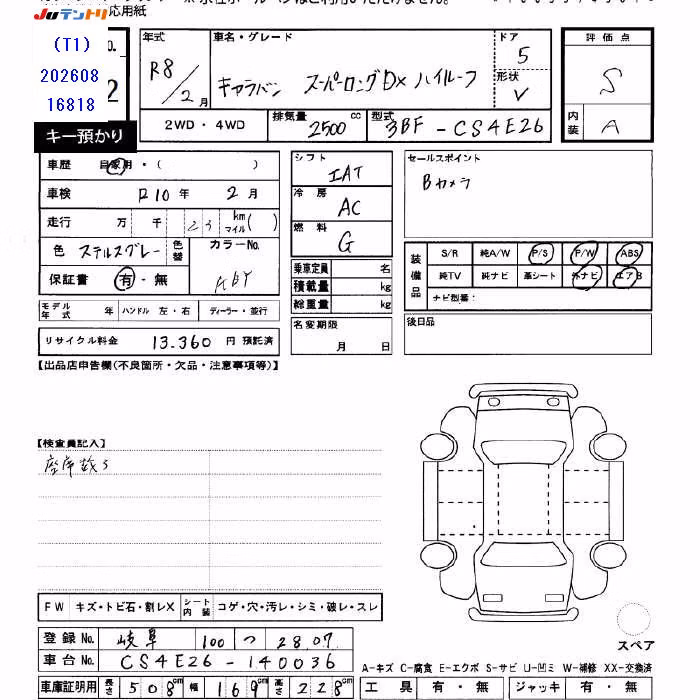 Juテントリ 応用紙
(T1)
202608
16818
No.
2
キー預かり
年式 車名・グレード ドア 評価点
R8/2月 キャラバン スーパーロングDX ハイルーフ 5 S
形状 V
2WD・4WD 排気量 2500cc 型式 3BF-CS4E26 内装 A
車歴 自家用・( )
車検 R10年 2月
走行 万 千 23 km マイル( )
色 ステルスグレー 色替 カラーNo.
保証書 有・無 KBY
モデル年式 年 ハンドル 左・右 ディーラー・並行
リサイクル料金 13,360 円 預託済
シフト IAT
冷房 AC
燃料 G
乗車定員 名
積載量 kg
総重量 kg
名変期限 月 日
セールスポイント
Bカメラ
装備品 S/R 純A/W P/S P/W ABS
純TV 純ナビ 革シート 外ナビ エアB
ナビ型番:
後日品
【出品店申告欄(不良箇所・欠品・注意事項等)】
【検査員記入】
座席数5
FW キズ・トビ石・割レX シート内装 コゲ・穴・汚レ・シミ・破レ・スレ
登録No. 岐阜 100 つ 28-07
車台No. CS4E26-140036
車庫証明用 長さ 508cm 幅 169cm 高さ 228cm
スペア
A-キズ C-腐食 E-エクボ S-サビ U-凹ミ W-補修 XX-交換済
工具 有・無 ジャッキ 有・無